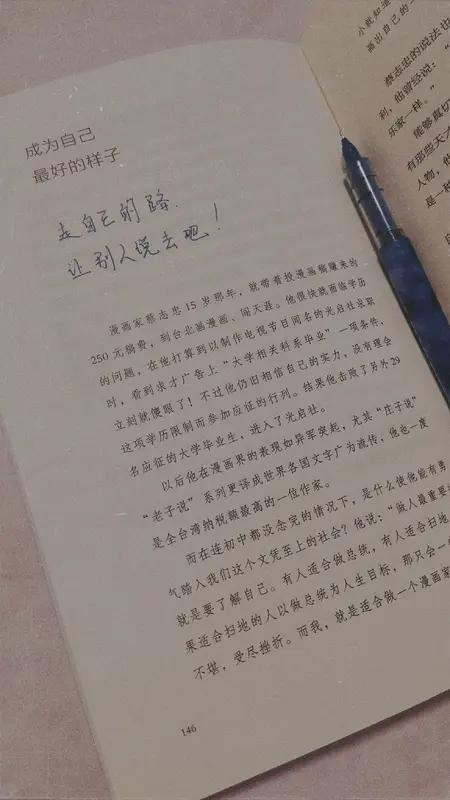 成为自己
最好的样子
走自己的路.
让别人说去吧！
漫画家蔡志忠15岁那年，就带着投漫画稿赚来的
250元稿费，到台北画漫画、闯天涯。他很快就面临学历
的问题，在他打算到以制作电视节目闻名的光启社求职
时，看到求才广告上“大学相关科系毕业”一项条件，
立刻就傻眼了！不过他仍旧相信自己的实力，没有理会
这项学历限制而参加应征的行列。结果他击败了另外29
名应征的大学毕业生，进入了光启社。
以后他在漫画界的表现如异军突起，尤其“庄子说”
“老子说”系列更译成世界各国文字广为流传，他也一度
是全台湾纳税额最高的一位作家。
而在连初中都没念完的情况下，是什么使他能有勇
气踏入我们这个文凭至上的社会？他说：“做人最重要的
就是要了解自己。有人适合做总统，有人适合扫地
果适合扫地的人以做总统为人生目标，那只会一
不堪，受尽挫折。而我，就是适合做一个漫画家
146
小就知道
画出自己的一
蔡志忠的说法也
利，他曾经说：“
乐家一样。”
能够真切
有那些天才
人物，他
是一种